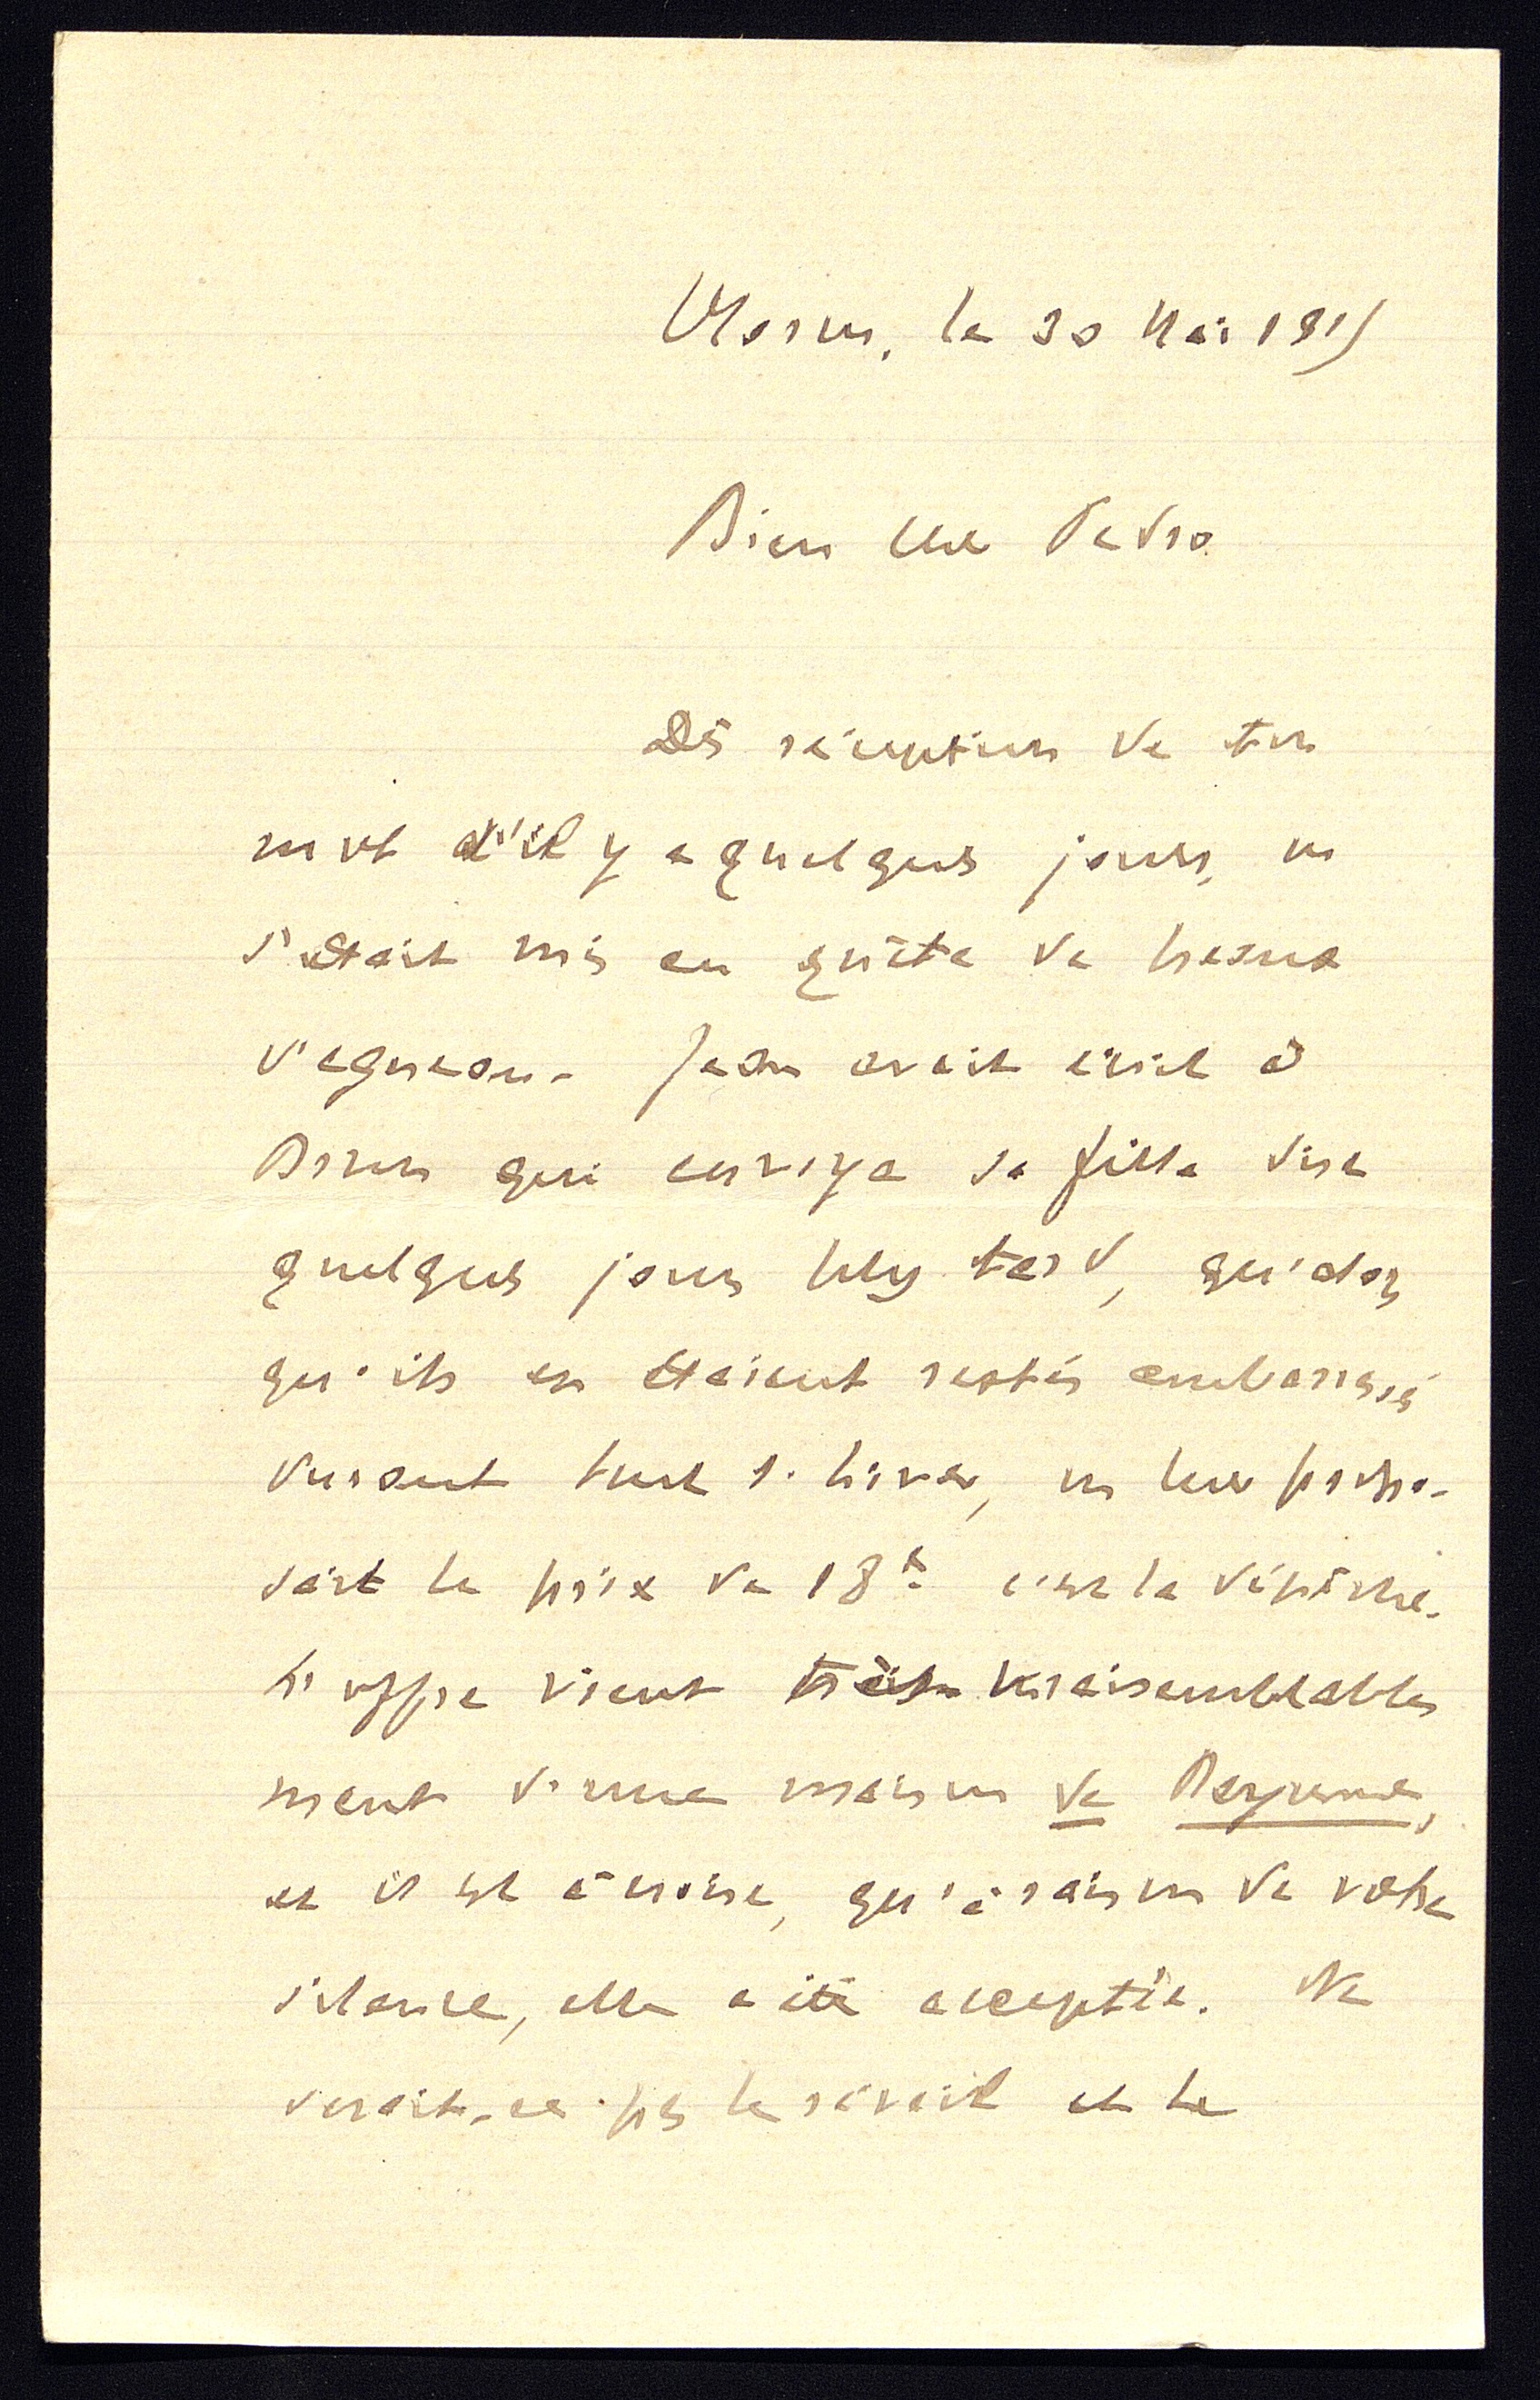 le 30 Mai 1915
Bien cher Pedro
Dès réception de ton
mot d'il y a quelques jours, on
s'était mis en quête de peaux
d'agneau. Jean avait écrit à
qui envoya sa fille dire
quelques jours plus tard, qu'alors
qu'ils en étaient restés embarrassés
durant tout l'hiver, on leur propo-
sait le prix de 18 c'est la dépêche.
L'offre vient très vraisemblable
ment d'une maison de Bayonne,
et il est à croire, qu'à raison de votre
silence, elle a été acceptée. Ne
serait-ce pas le réveil et la